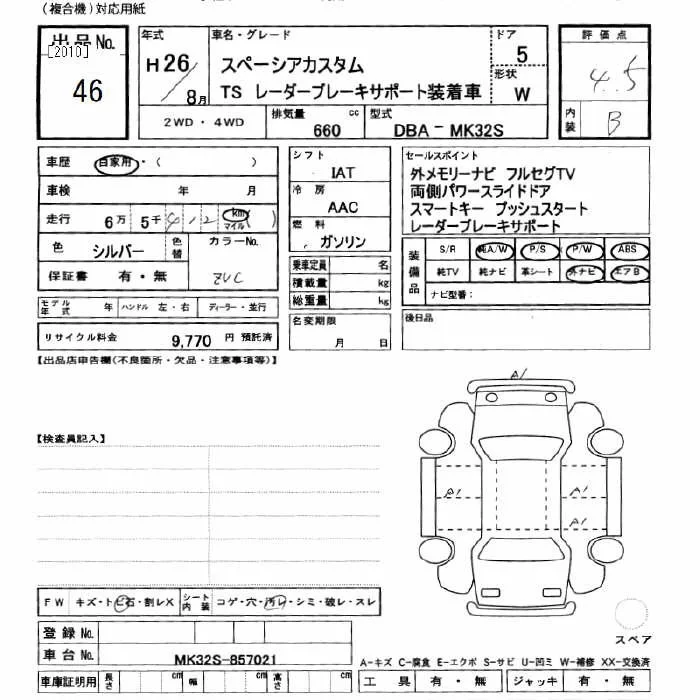 (複合機)対応用紙
出品No.
[2010]
46
年式
H26
8月
車名・グレード
スペーシアカスタム
TS レーダーブレーキサポート装着車
ドア
5
形状
W
2WD・4WD
排気量
660 cc
型式
DBA－MK32S
評価点
4.5
内装
B
車歴 自家用・( )
車検 年 月
走行 6万 5千 412 km マイル ( )
色 シルバー 色替
カラーNo.
ZVC
保証書 有・無
モデル年式 年 ハンドル 左・右 ディーラー・並行
リサイクル料金 9,770 円 預託済
シフト
IAT
冷房
AAC
燃料
ガソリン
乗車定員 名
積載量 kg
総重量 kg
名変期限
月 日
セールスポイント
外メモリーナビ フルセグTV
両側パワースライドドア
スマートキー プッシュスタート
レーダーブレーキサポート
装備品
S/R 純A/W P/S P/W ABS
純TV 純ナビ 革シート 外ナビ エアB
ナビ型番:
後日品
【出品店申告欄(不良箇所・欠品・注意事項等)】
【検査員記入】
A1
A1
A1
A1
FW キズ・トビ石・割レX
シート内装 コゲ・穴・汚レ・シミ・破レ・スレ
登録No.
車台No. MK32S-857021
車庫証明用 長さ cm 幅 cm 高さ cm
スペア
A-キズ C-腐食 E-エクボ S-サビ U-凹ミ W-補修 XX-交換済
工具 有・無 ジャッキ 有・無